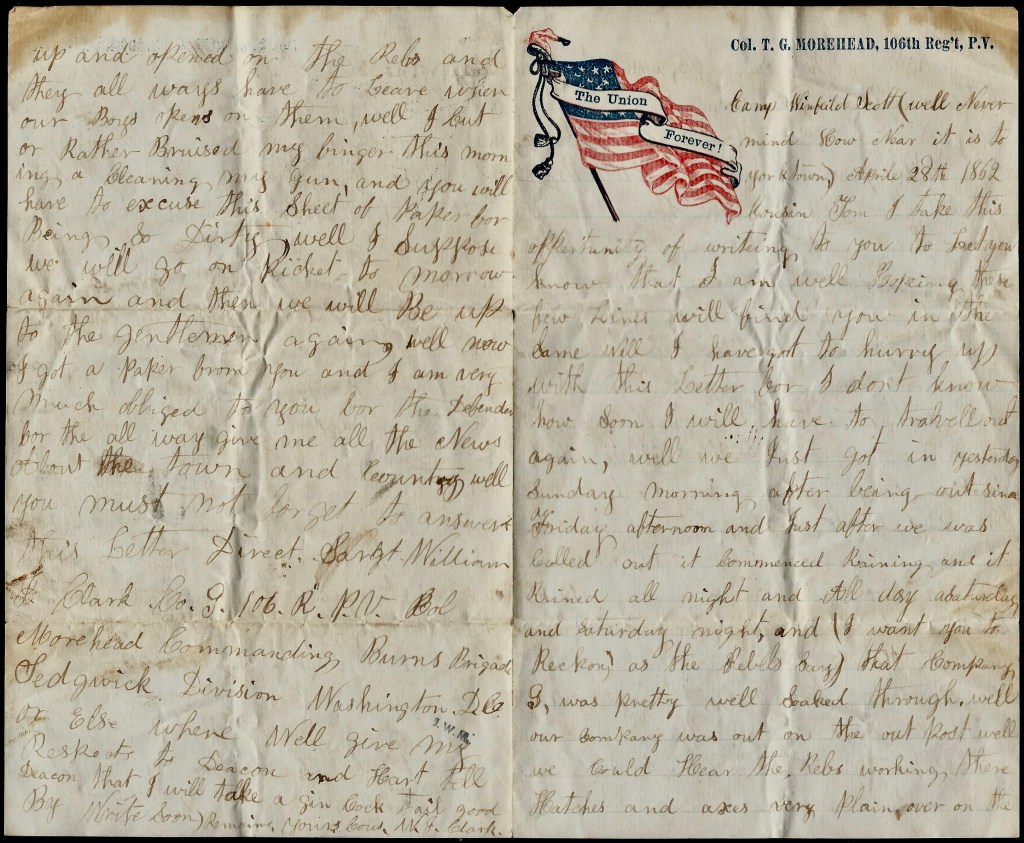 Col. T. G. MOREHEAD, 106th Reg't, P.V.
The Union
Forever!
Camp Winfeild Scott (well Never
mind How Near it is to
yorktown) Aprile 28th 1862
Cousin Tom I take this
oppertunity of writeing to you to Let you
know that I am well Hopeing these
few Lines will find you in the
Same Well I have got to hurry up
with this Letter for I dont know
how Soon I will have to travell out
again, well we Just got in yesterday
Sunday morning after being out since
Friday afternoon and Just after we was
Called out it Commenced Raining and it
Rained all night and All day Saturday
and Saturday night, and (I want you to
Reckon) as the Rebels Say) that Company
G, was pretty well Soaked through, well
our Company was out on the out post well
we Could Hear the Rebs working there
Hatches and axes very plain over on the
up and opened on the Rebs and
they all ways have to Leave when
our Boys opens on them, well I Cut
or Rather Bruised my finger this morn
ing a Cleaning my gun, and you will
have to excuse this Sheet of Paper for
Being So Dirty well I Suppose
we will go on Picket to morrow
again and then we will Be up
to the gentlemen again, well now
I got a Paper from you and I am very
much obliged to you for the
for the all way give me all the News
About the town and Country well
you must not forget to answer
this Letter Direct. Sargt. William
H. Clark Co. G. 106. R. P.V. Col
Morehead Commanding Burns Brigade
Sedgwick Division Washington D.C.
or Else where Well give my
J. W. M.
Respects to Deacon and Hart tell
Deacon that I will take a gin Cock tail good
By Write Soon) Remains yours Cous. W. H. Clark.